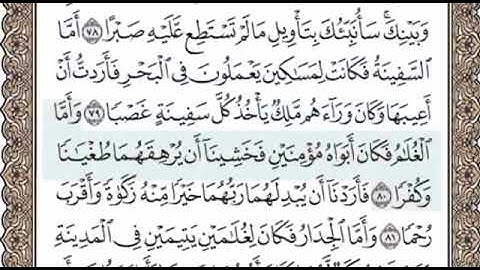 وَبَيْنِكَ ۚ سَأُنَبِّئُكَ بِتَأْوِيلِ مَا لَمْ تَسْتَطِع عَّلَيْهِ صَبْرًا ٧٨ أَمَّا
ٱلسَّفِينَةُ فَكَانَتْ لِمَسَٰكِينَ يَعْمَلُونَ فِى ٱلْبَحْرِ فَأَرَدتُّ أَنْ
أَعِيبَهَا وَكَانَ وَرَآءَهُم مَّلِكٌ يَأْخُذُ كُلَّ سَفِينَةٍ غَصْبًا ٧٩ وَأَمَّا
ٱلْغُلَٰمُ فَكَانَ أَبَوَاهُ مُؤْمِنَيْنِ فَخَشِينَآ أَن يُرْهِقَهُمَا طُغْيَٰنًا
وَكُفْرًا ٨٠ فَأَرَدْنَآ أَن يُبْدِلَهُمَا رَبُّهُمَا خَيْرًا مِّنْهُ زَكَوٰةً وَأَقْرَبَ
رُحْمًا ٨١ وَأَمَّا ٱلْجِدَارُ فَكَانَ لِغُلَٰمَيْنِ يَتِيمَيْنِ فِى ٱلْمَدِينَةِ